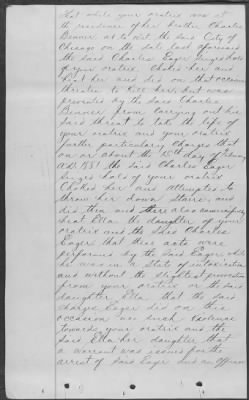 That while your oratrix was at
the residence of her brother Charles
Benner at to wit the said City of
Chicago on the date last aforesaid
the said Charles Eager seized hold
of your oratrix choked her and
beat her and did on that occasion
threaten to kill her, but was
prevented by the said Charles
Benner from carrying out his
said threat to take the life of
your oratrix and your oratrix
further particularly charges that
on or about the 15th day of
A.D. 1881 the said Charles Eager
seized hold of your oratrix
choked her and attempted to
throw her down stairs, and
did then and there also
beat Ella the daughter of your
oratrix and the said Charles
Eager that these acts were
performed by the said Eager while
he was in a state of intoxication
and without the slightest provocation
from your oratrix or the said
daughter Ella, that the said
Charles Eager did on this
occasion use such violence
towards your oratrix and the
said Ella her daughter that
a warrant was issued for the
arrest of said Eager and an officer